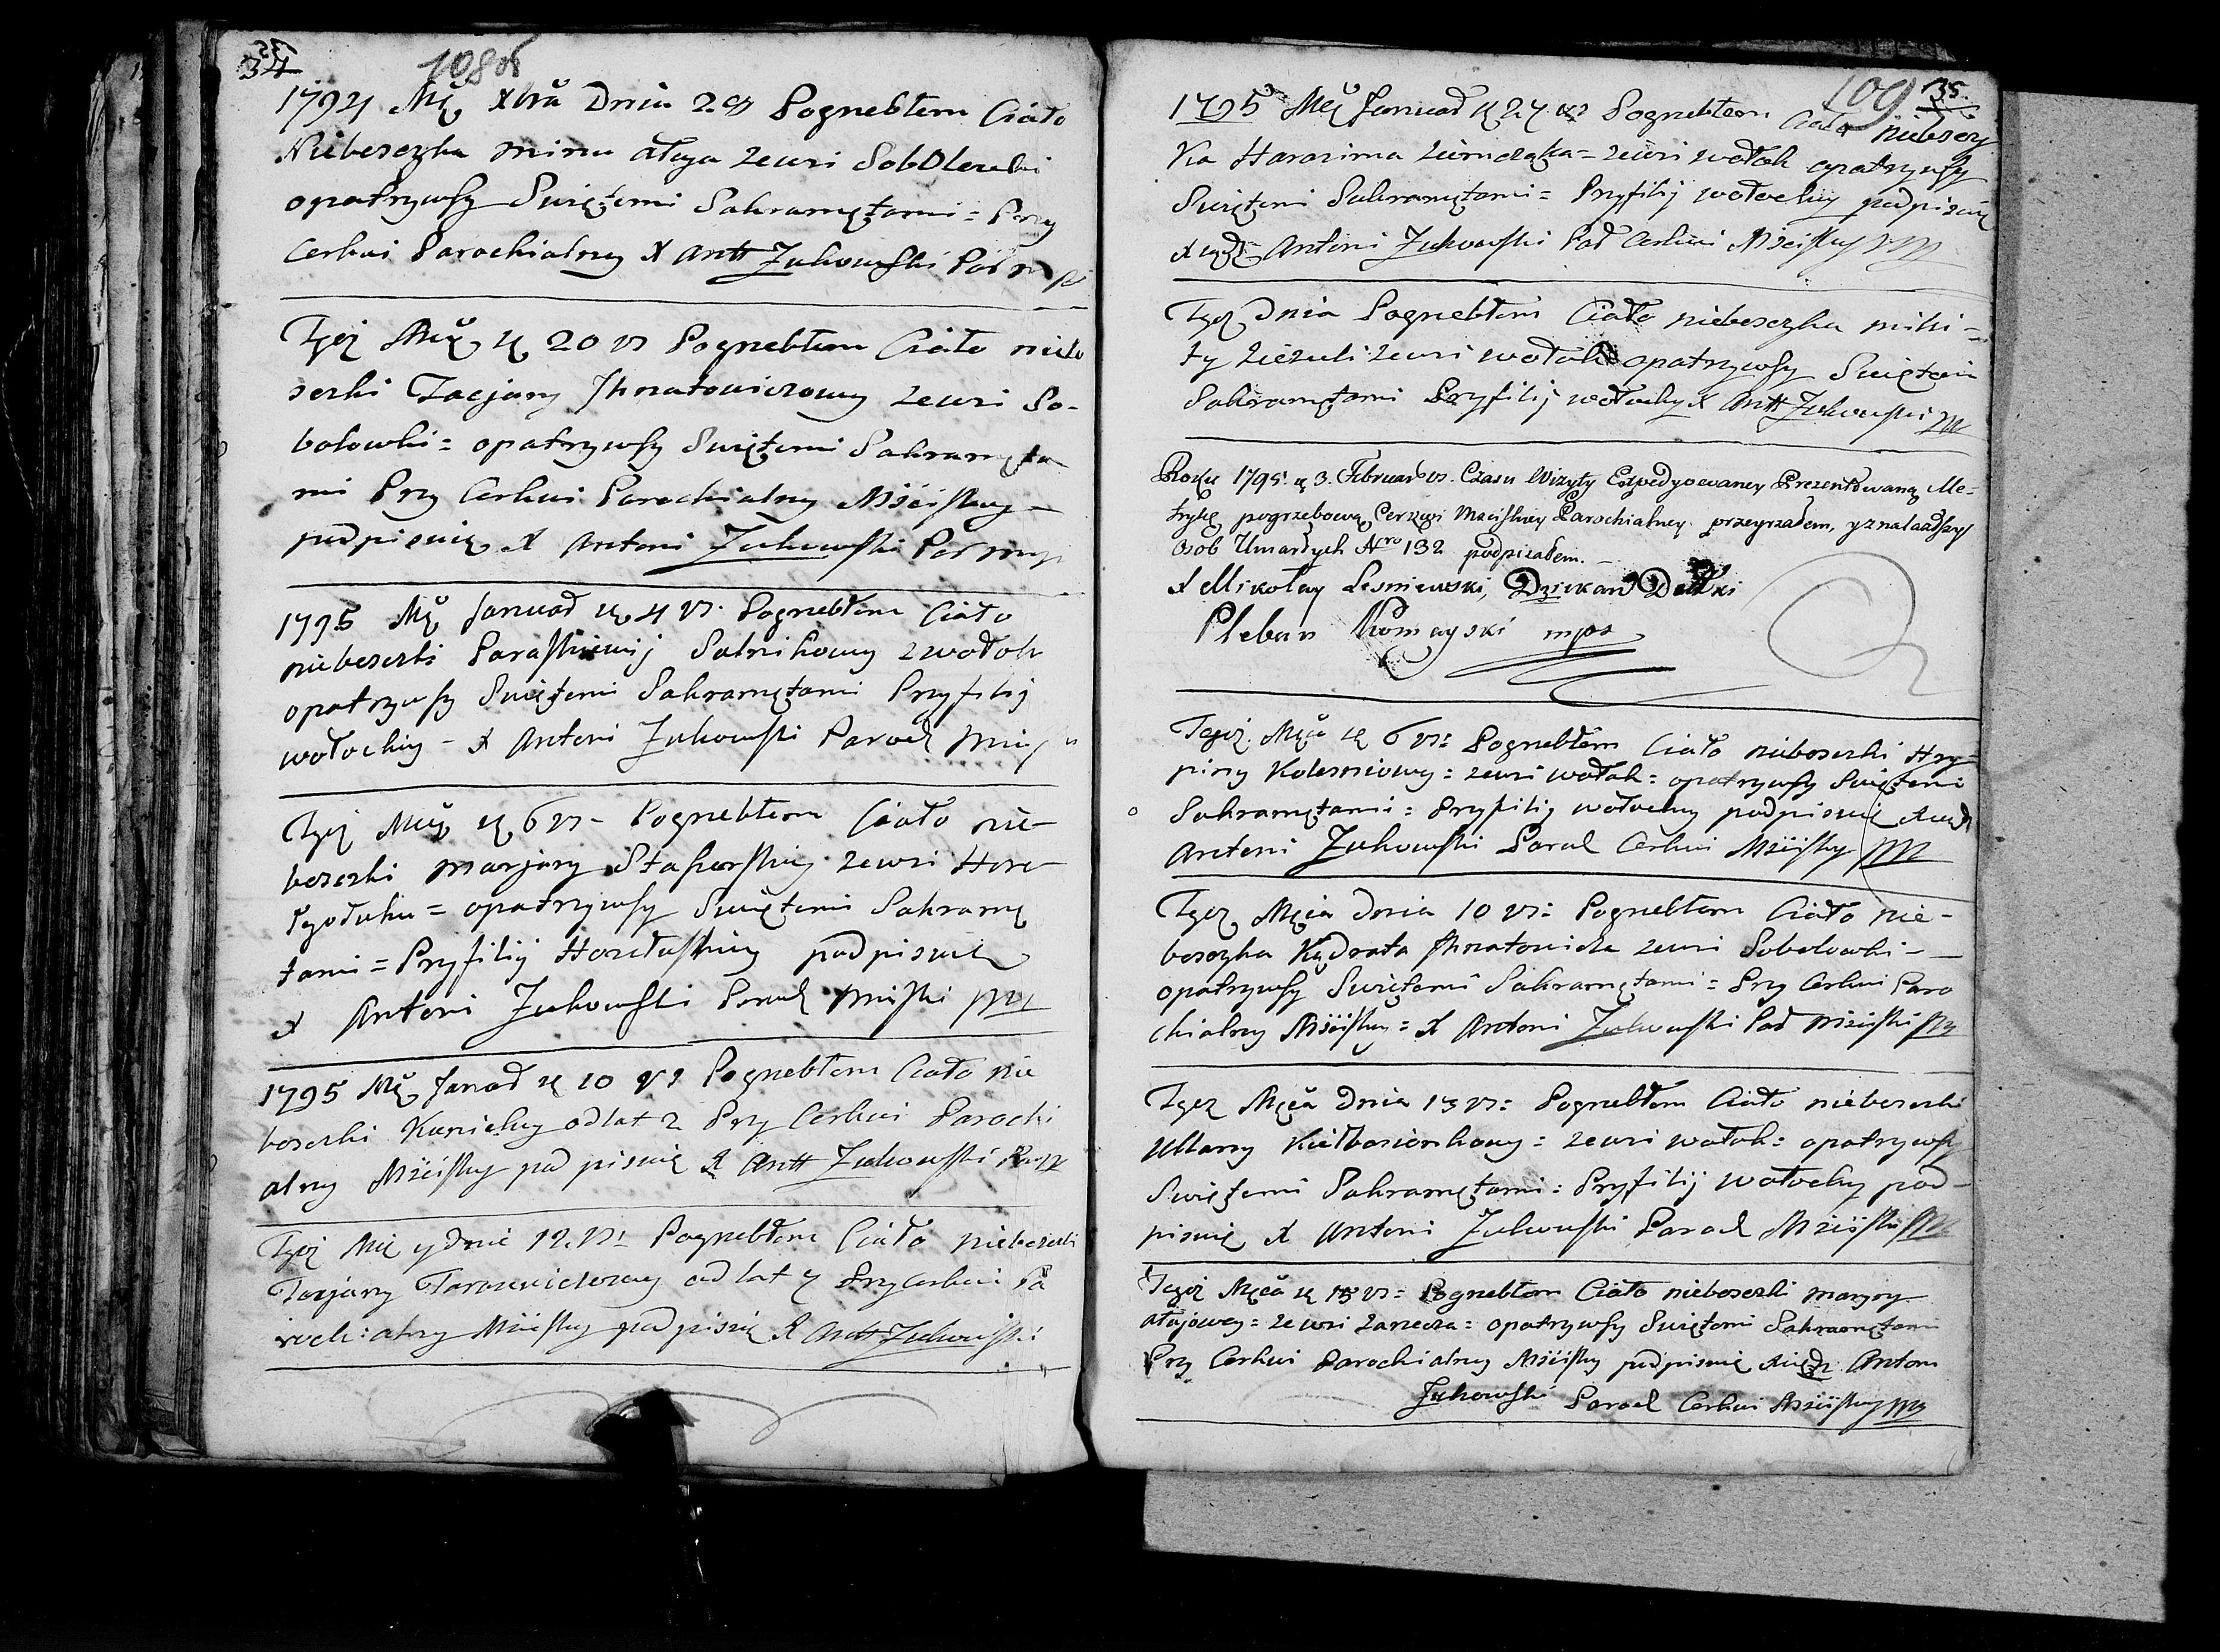 34
108об
1794 Mę Xbra Dnia 2. vs Pogrebłem Ciało
Niebosczka mirna ałaja zewsi Sobolewki
opatrzywszy Swiętemi Sakramętami = Przy
Cerkwi Parochialney X Antt Zukowski Par mp
Tyoż Męca ę 20 vs Pogrebłem Ciało niebo
sczki Tacjany Jhnatowiczowey zewsi So-
bolowki = opatrzywszy Swiętemi Sakramęta
mi Przy Cerkwi Parochialney Mściskey –
podpisuię X Antoni Zukowski Par mp
1795 Mę Januar ę 4 vs. Pogrebłem Ciało
niebosczki Paraskiewij Salnikowey zwołok
opatrzywszy Swiętemi Sakramętami Przyfilij
wołockiey – X Antoni Zukowski Paroch
Tyoż Męca ę 6 vs – Pogrebłem Ciało nie-
bosczki marjany Staherskiey zewsi Horo-
opatrzywszy Swiętemi Sakramę
tami = Przyfilij podpisuię
X Antoni Zukowski Paroch Mściski mp
1795 Mę Januar ę 10 vs Pogrebłem Ciało nie
bosczki odlat 2 Przy Cerkwi Parochi
alney Mściskey podpisuię X Antt Zukowski
Tyoż Mię y dnie 12. vs: Pogrebłem Ciało niebosczki
Tacjany Tarasewiczowey odlat 7 Przycerkwi Pa
rochialney Mściskey podpisuię X Antt Zukowski
109 35.
1795 Mę Januar ę 27 vs Pogrebłem Ciało niebosz
ka Harasima = zewsi wołok opatrzywszy
Swiętemi Sakramętami = Przyfilij wołockiey podpisuię
Xiądz Antoni Zukowski Par Cerkwi Mściskey mp
Tyoż Dnia Pogrebłem Ciało niebosczka miki =
ty zewsi wołok opatrzywszy Swiętemi
Sakramętami Przyfilij wołockiey X Antt Zukowski mp
Roku 1795. ę 3. Februar. vs. Czasu Wizyty Expedyowaney Prezentowaną Me-
trykę pogrzebową Cerkwi Msciskiey Parochialney przeyrzałem, y znalazłszy
Osob Umarłych Nro 132 podpisałem.
X Mikołay Lesniewski, Dziekan
Pleban Komayski mpa
Tegoż Męca ę 6 vs: Pogrebłem Ciało niebosczki Hry-
piny Kolesniowey = zewsi wołok = opatrzywszy Swiętemi
Sakramętami = Przyfilij wołockiey podpisuię Xiądz
Antoni Zukowski Paroch Cerkwi Mściskey mp
Tyoż Męca dnia 10 vs: Pogrebłem Ciało nie-
bosczka Kądrata Jhnatowicza zewsi Sobolowki –
opatrzywszy Swiętemi Sakramętami = Przy Cerkwi Paro
chialney Mściskey = X Antoni Zukowski Par Mściski mp
Tyoż Męca Dnia 13 vs: Pogrebłem Ciało niebosczki
Ullany Kiełbasionkowey = zewsi wołok = opatrzywszy
Swiętemi Sakramętami = Przyfilij wołockiey pod-
pisuię X Antoni Zukowski Paroch Mściski mp
Tegoż Męca ę 15 vs = Pogrebłem Ciało niebosczki maryny
ałajowey = zewsi Zarzecza = opatrzywszy Swiętemi Sakramętami
Przy Cerkwi Parochialney Mściskey podpisuię Xiędz Antoni
Zukowski Paroch Cerkwi Mściskey mp